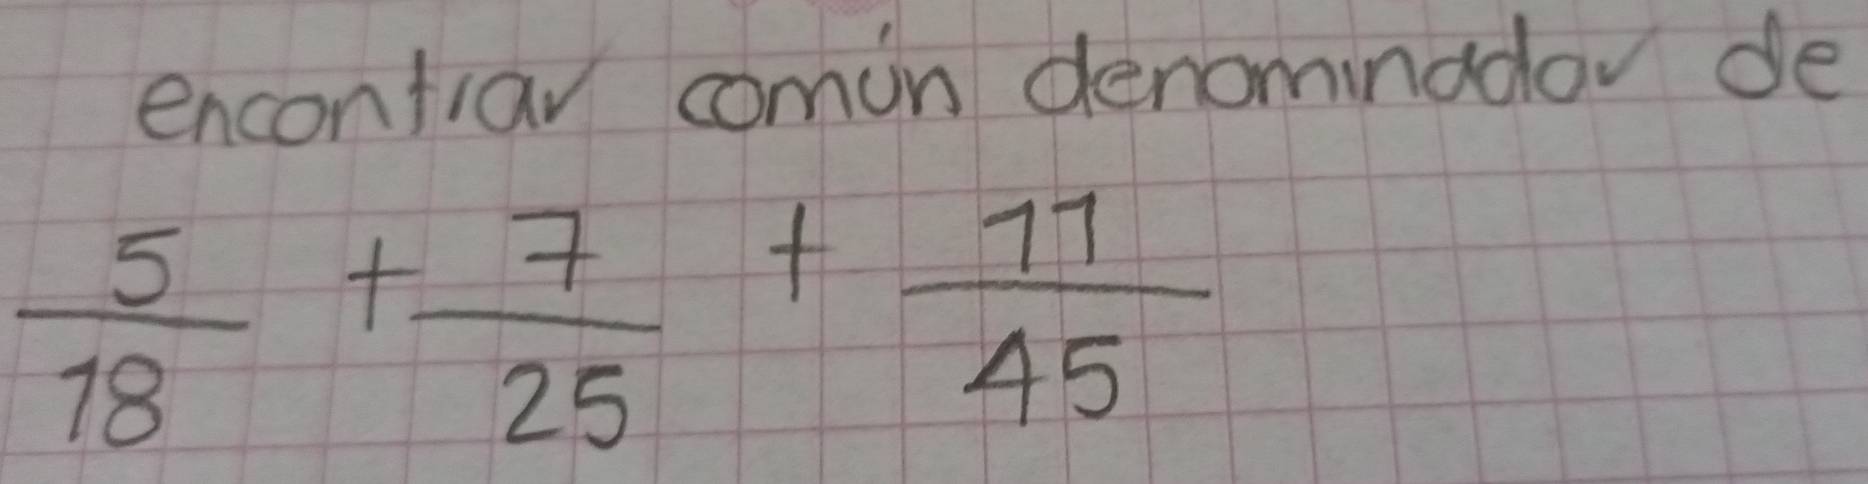 encontrar común denominador de
5/18 + 7/25 + 11/45